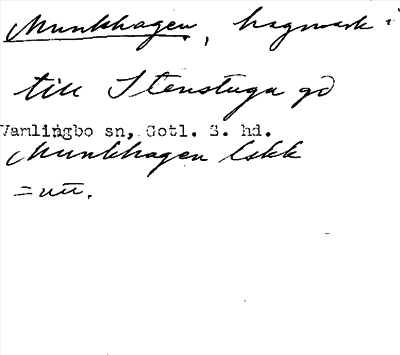 Munkhagen, hagmark i
till Stenstuga gd
Vamlingbo sn, Gotl. S. hd.
Munkhagen Lskk
= utt.